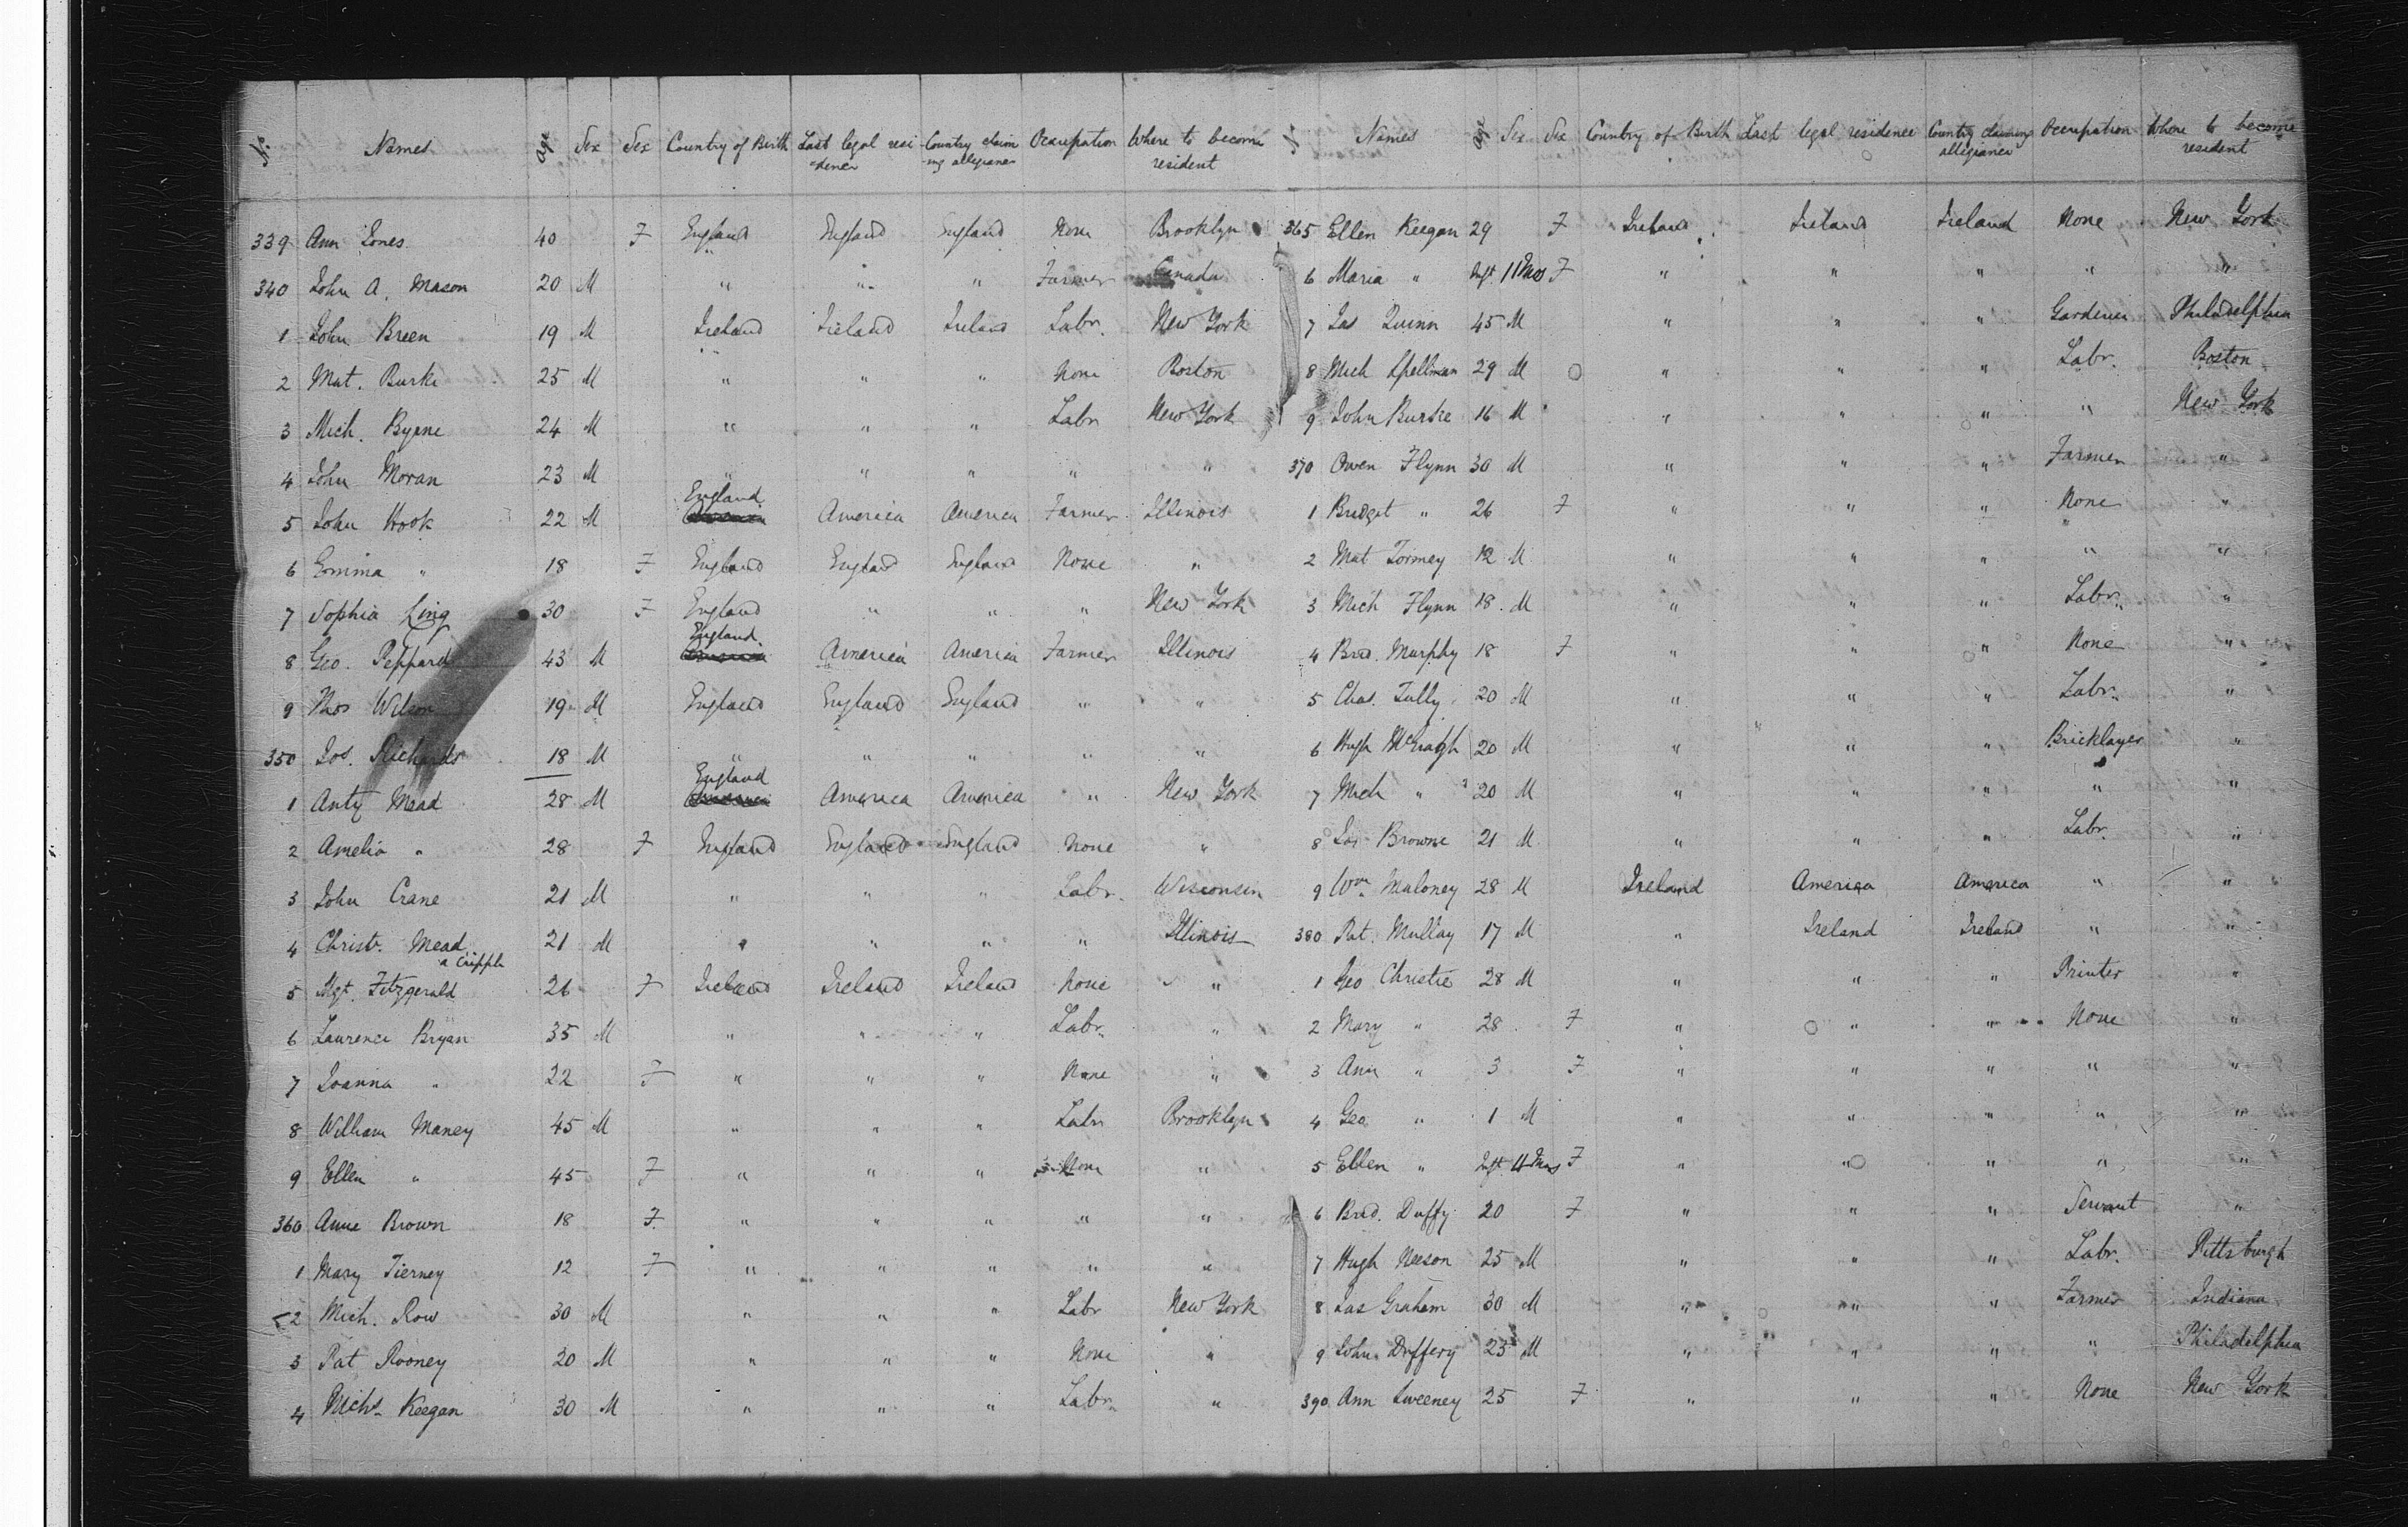 No. Names Age Sex Sex Country of Birth Last legal resi-dence Country claim-ing allegiance Occupation Where to become resident
339 Ann Jones 40 F England England England None Brooklyn
340 John A. Mason 20 M " " " Farmer Canada
1 John Breen 19 M Ireland Ireland Ireland Labr. New York
2 Mat. Burke 25 M " " " None Boston
3 Mich. Byrne 24 M " " " Labr New York
4 John Moran 23 M " " " " "
5 John Hook 22 M England America America Farmer Illinois
6 Emma " 18 F England England England None "
7 Sophia Ling 30 F England " " " New York
8 Geo. Peppard 43 M England America America Farmer Illinois
9 Thos Wilson 19 M England England England " "
350 Jos. Richards 18 M " " " " "
1 Anty Mead 28 M England America America " New York
2 Amelia " 28 F England England England None "
3 John Crane 21 M " " " Labr. Wisconsin
4 Christr. Mead 21 M " " " " Illinois
a Cripple
5 Mgt. Fitzgerald 26 F Ireland Ireland Ireland None "
6 Laurence Bryan 35 M " " " Labr. "
7 Joanna " 22 F " " " None "
8 William Maney 45 M " " " Labr Brooklyn
9 Ellen " 45 F " " " None "
360 Anne Brown 18 F. " " " " "
1 Mary Tierney 12 F " " " " "
2 Mich. Row 30 M " " " Labr New York
3 Pat Rooney 20 M " " " None "
4 Michl. Keegan 30 M " " " Labr. "
Names Age Sex Sex Country of Birth Last legal residence Country claiming allegiance Occupation Where to become resident
365 Ellen Keegan 29 F Ireland Ireland Ireland None New York
6 Maria " Inft. 11 Mos F " " " " "
7 Jas Quinn 45 M " " " Gardener Philadelphia
8 Mich Spellman 29 M " " " Labr. Boston
9 John Burke 16 M " " " " New York
370 Owen Flynn 30 M " " " Farmer "
1 Bridget " 26 F " " " None "
2 Mat Tormey 12 M " " " " "
3 Mich Flynn 18. M " " " Labr. "
4 Brid. Murphy 18 F " " " None "
5 Chas. Tully 20 M " " " Labr. "
6 Hugh McGrath 20 M " " " Bricklayer "
7 Mich " 20 M " " " " "
8 Jas Browne 21 M " " " Labr. "
9 Wm. Maloney 28 M Ireland America America " "
380 Pat. Mullay 17 M " Ireland Ireland " "
1 Geo Christie 28 M " " " Printer "
2 Mary " 28 F " " " None "
3 Ann " 3 F " " " " "
4 Geo " 1 M " " " " "
5 Ellen " Inft 11 Mos F " " " " "
6 Brid. Duffy 20 F " " " Servant "
7 Hugh Neeson 25 M " " " Labr. Pittsburgh
8 Jas Graham 30 M " " " Farmer Indiana
9 John Duffery 23 M " " " " Philadelphia
390 Ann Sweeney 25 F " " " None New York